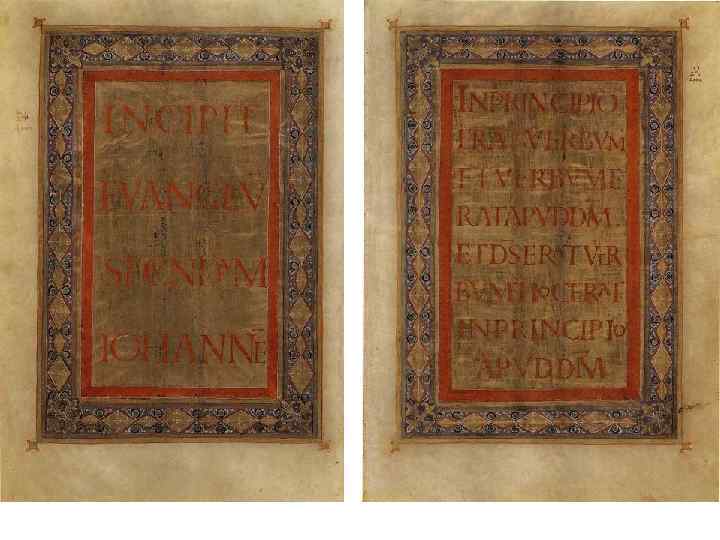 INCIPIT
EVANGLIŪ
SECNDVM
IOHANNĒ
INPRINCIPIO
ERAT VERBVM
ET VERBVM E
RAT APVD DM̄
ET DS ERAT VER
BVM HOC ERAT
IN PRINCIPIO
APVD DM̄